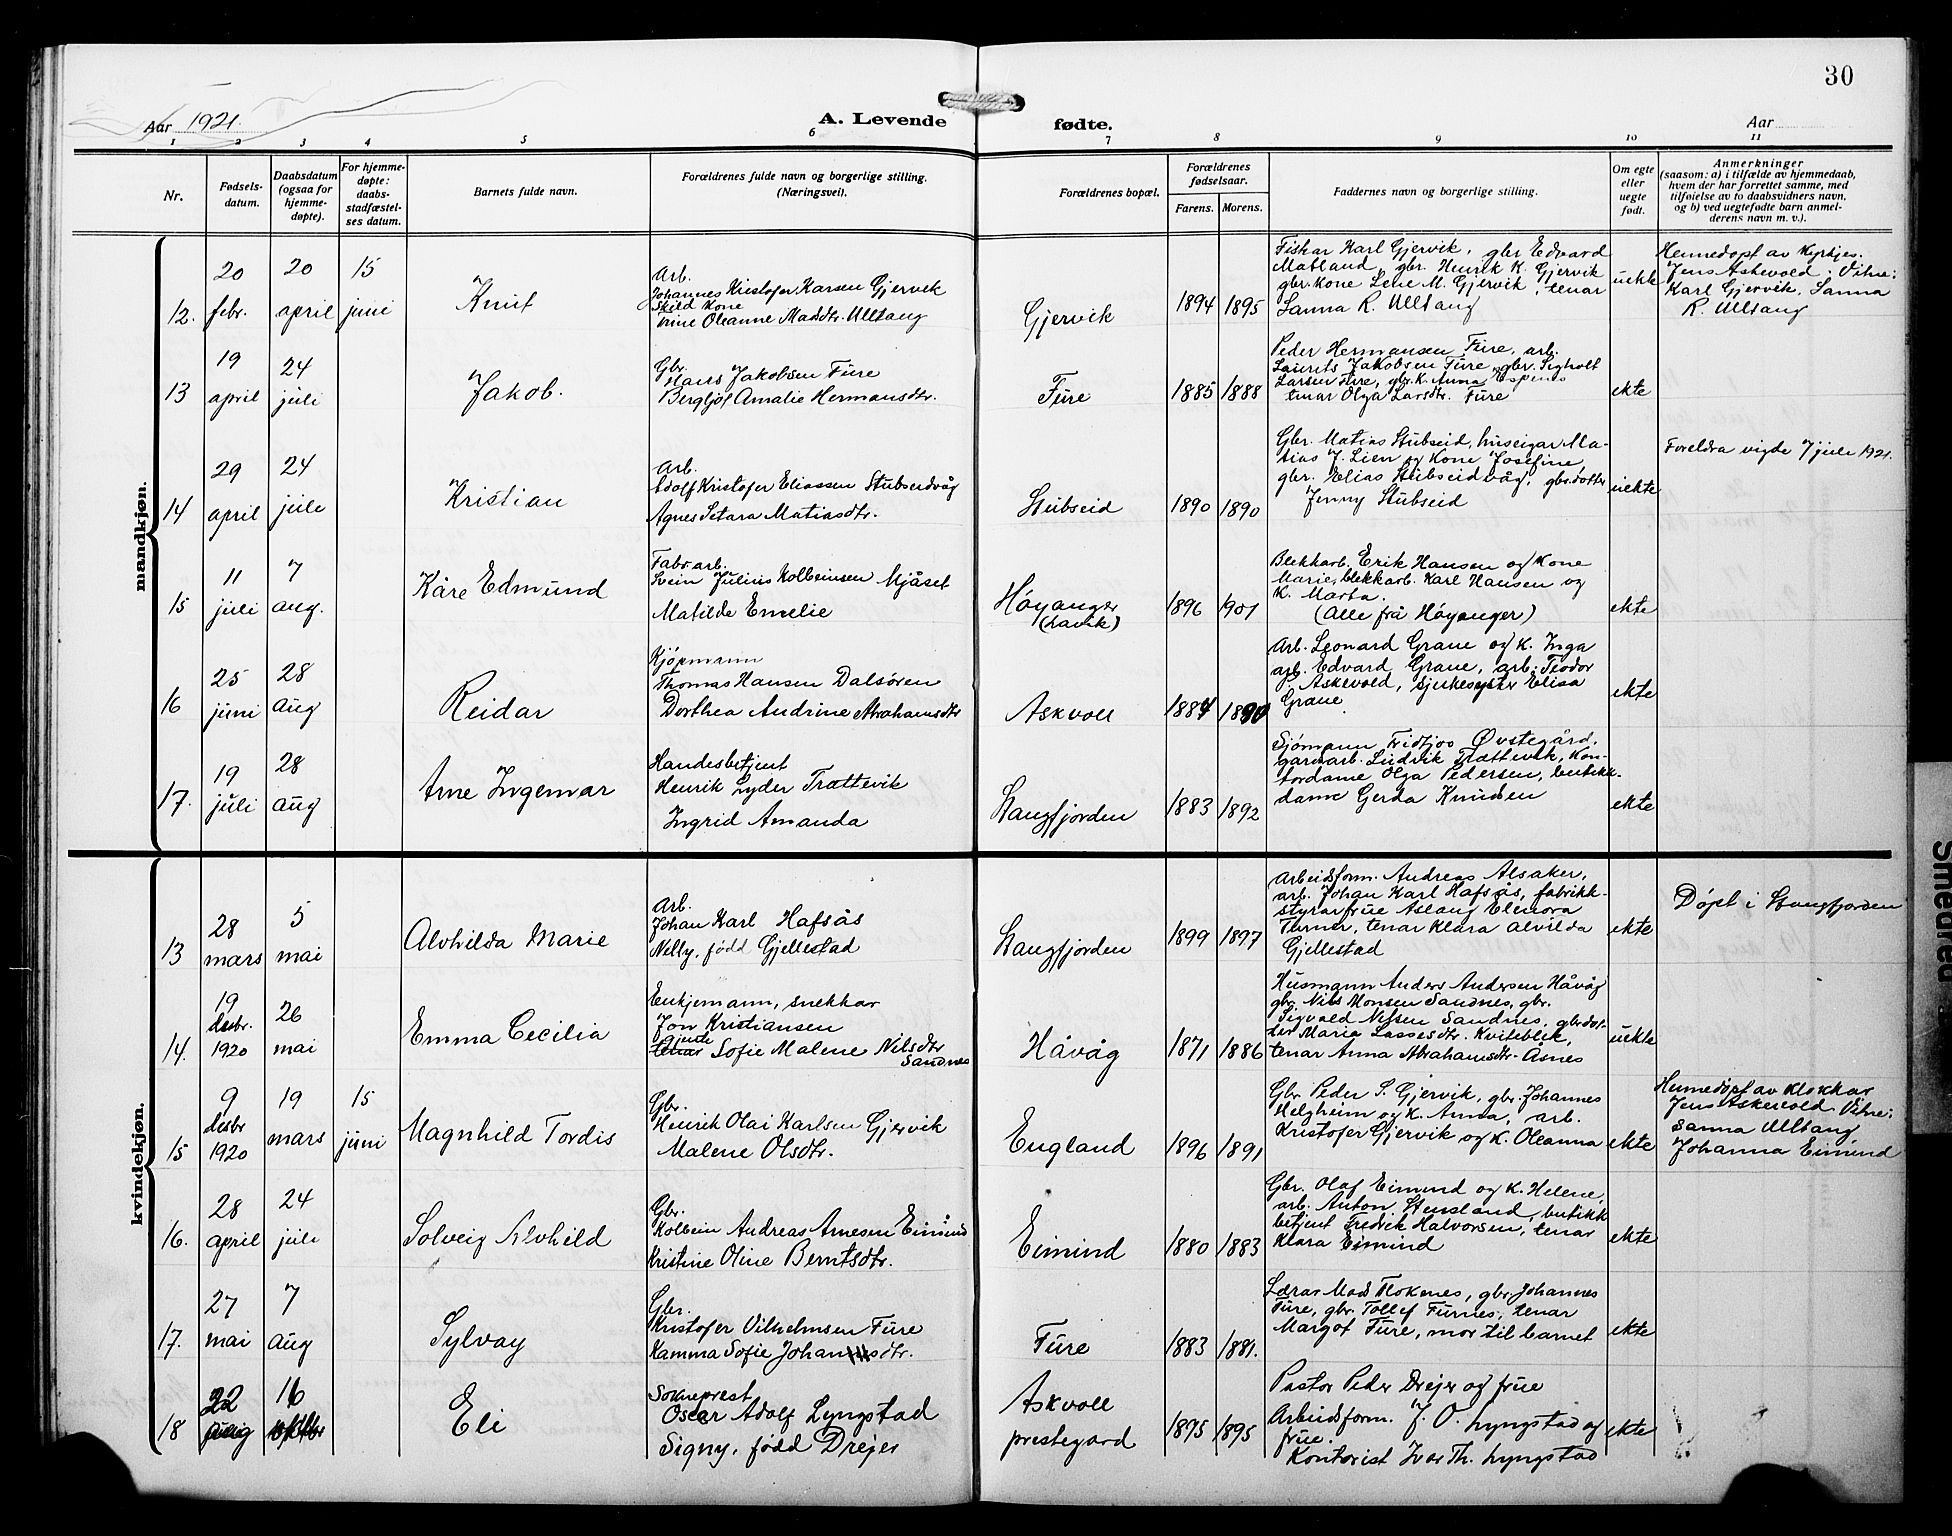 30
Aar 1921.
A. Levende fødte.
Aar
1 2 3 4 5 6 7 8 9 10 11
Nr.
Fødsels-
datum.
Daabsdatum
(ogsaa for
hjemme-
døpte).
For hjemme-
døpte:
daabs-
stadfæstel-
ses datum.
Barnets fulde navn.
Forældrenes fulde navn og borgerlige stilling.
(Næringsvei).
Forældrenes bopæl.
Forældrenes
fødselsaar.
Farens. Morens.
Faddernes navn og borgerlige stilling.
Om egte
eller
uegte
født.
Anmerkninger
(saasom: a) i tilfælde av hjemmedaab,
hvem der har forrettet samme, med
tilføielse av to daabsvidners navn,
og b) ved uegtefødte barn anmel-
derens navn m. v.).
mandkjøn.
12. 20 febr. 20 april 15 juni
Knut
Arb.
Johannes Kristofer Karsen Gjervik
Skild Kone
Trine Oleanne Madsdtr. Ulltang
Gjervik
1894 1895
Fiskar Karl Gjervik, gbr Edvard
Matland, gbr. Henrik K. Gjervik
gbr. kone Lene M. Gjervik, tenar
Sanna R. Ulltang
uekte
Hemedøpt av Kyrkjes.
Jens Askevold. Vitne:
Karl Gjervik, Sanna
R. Ulltang
13 19 april 24 juli
Jakob.
Gbr.
Hans Jakobsen Fure
Bergljot Amalie Hermansdtr.
Fure
1885 1888
Peder Hermansen Fure, arb.
Laurits Jakobsen Fure, gbr. Sigholt
Larsen Fure, gbr. K. Anna Espenes
tenar Olga Larsdtr. Fure
ekte
14 29 april 24 jule
Kristian
Arb.
Adolf Kristofer Eliassen Stubseidvåg
Agnes Setara Matiasdtr.
Stubseid
1890 1890
Gbr. Matias Stubseid, huseigar Ma-
tias J. Lien og Kone Josefine,
gbr. Elias Stubseidvåg, gbr.dotter
Jenny Stubseid
uekte
Foreldra vigde 7 jule 1921.
15 11 juli 7 aug.
Kåre Edmund
Fabr. arb.
Svein Julius Kolbeinsen Mjåset
Matilde Emelie
Høyanger
(Lavik)
1896 1901
Blekkarb. Erik Hansen og Kone
Marie, blekkarb. Karl Hansen og
K. Marta.
(Alle frå Høyanger)
ekte
16 25 juni 28 aug
Reidar
Kjøpmann
Thomas Hansen Dalsören
Dorthea Andrine Abrahamsdtr
Askvoll
1884 1890
Arb. Leonard Grane og K. Inga
arb. Edvard Grane, arb. Teodor
Askevold, sjukesyster Elisa
Grane
ekte
17. 19 juli 28 aug
Arne Ingemar
Handesbetjent
Henrik Lyder Trættevik
Ingrid Amanda
Stangfjorden
1883 1892
Sjömann Fridtjov Øvstegård,
garnarb. Ludvik Trættevik, Kon-
tordame Olga Pedersen, butikk-
dame Gerda Knudsen
ekte
kvindekjøn.
13 28 mars 5 mai
Alvhilda Marie
Arb.
Johan Karl Hafsås
Nelly, född Gjellestad
Stangfjorden
1899 1897
Arbeidsform. Andreas Alsaker,
arb. Johan Karl Hafsås, fabrikk-
styrarfrue Aslaug Elinora
Turner, tenar Klara Alvilda
Gjellestad
ekte
Döpt i Stangfjorden
14. 19 desbr. 1920 26 mai
Emma Cecilia
Enkjemann, snekkar
Jon Kristiansen
Gjente
tenar Sofie Malene Nilsdtr
Sandnes
Håvåg
1871 1886
Husmann Anders Andersen Håvåg
gbr. Nils Monsen Sandnes, gbr.
Sigvald Nilsen Sandnes, gbr.dot-
ter Maria Lassesdtr. Kviteblik,
tenar Anna Abrahamsdtr. Åsnes
uekte
15 9 desbr 1920 19 mars 15 juni
Magnhild Tordis
Gbr.
Henrik Olai Karlsen Gjervik
Malene Olsdtr.
England
1896 1891
Gbr. Peder S. Gjervik, gbr. Johannes
Helgheim og K. Anna, arb.
Kristofer Gjervik og K. Oleanna
ekte
Hemedøpt av Klokkar
Jens Askevold. Vitne:
Sanna Ulltang
Johanna Eimind
16. 28 april 24 jule
Solveig Alvhild
Gbr.
Kolbein Andreas Arnesen Eimind
Kristine Oline Berntsdtr.
Eimind
1880 1883
Gbr. Olaf Eimind og K. Helene,
arb. Anton Stensland, butikk
betjent Fredrik Halvorsen, tenar
Klara Eimind
ekte
17. 27 mai 7 aug
Sylvay
Gbr.
Kristofer Vilhelmsen Fure
Kamma Sofie Johannsdtr.
Fure
1883 1881.
Lærar Mads Flokenes, gbr. Johannes
Fure, gbr. Tollef Furnes, tenar
Margot Fure, mor til barnet
ekte
18 22 aug 16 oktbr
Eli
Sokneprest
Oscar Adolf Lyngstad
Signy, född Drejer
Askvoll
prestegard
1895 1895
Pastor Peder Drejer og frue
Arbeidsform. J. O. Lyngstad og
frue.
Kontorist Ivar Th. Lyngstad
ekte
Smedred